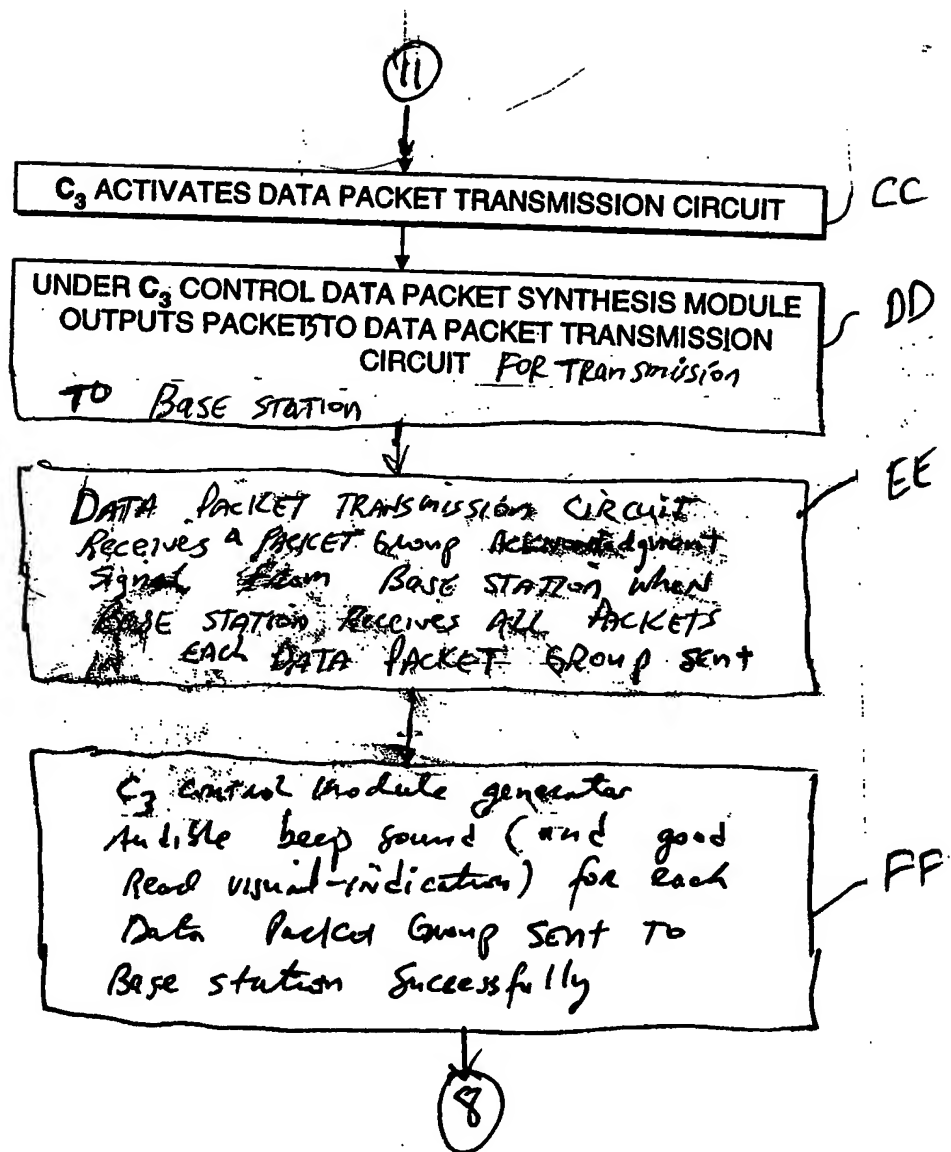 11
C₃ ACTIVATES DATA PACKET TRANSMISSION CIRCUIT
CC
UNDER C₃ CONTROL DATA PACKET SYNTHESIS MODULE
OUTPUTS PACKETS TO DATA PACKET TRANSMISSION
CIRCUIT FOR TRansmission
TO BASE STATION
DD
DATA PACKET TRANSMISSION CIRCUIT
Receives a PACKET Group Acknowledgment
Signal from BASE STATION when
BASE STATION Receives ALL PACKETS
EACH DATA PACKET GROUP SENT
EE
C₃ control Module generates
Audible beep sound (and good
Read visual-indication) for each
Data Packet Group SENT TO
Base station Successfully
FF
8